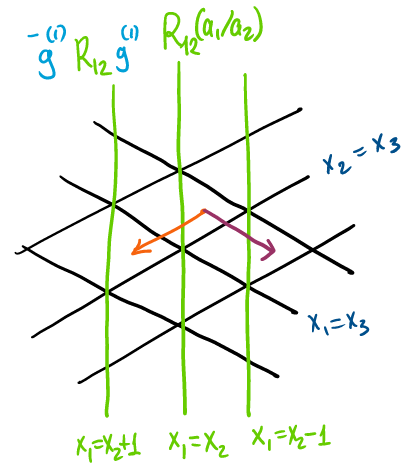 g̅⁽¹⁾ R₁₂ g⁽¹⁾ R₁₂(a₁/a₂)
x₂ = x₃
x₁ = x₃
x₁=x₂+1 x₁=x₂ x₁=x₂-1